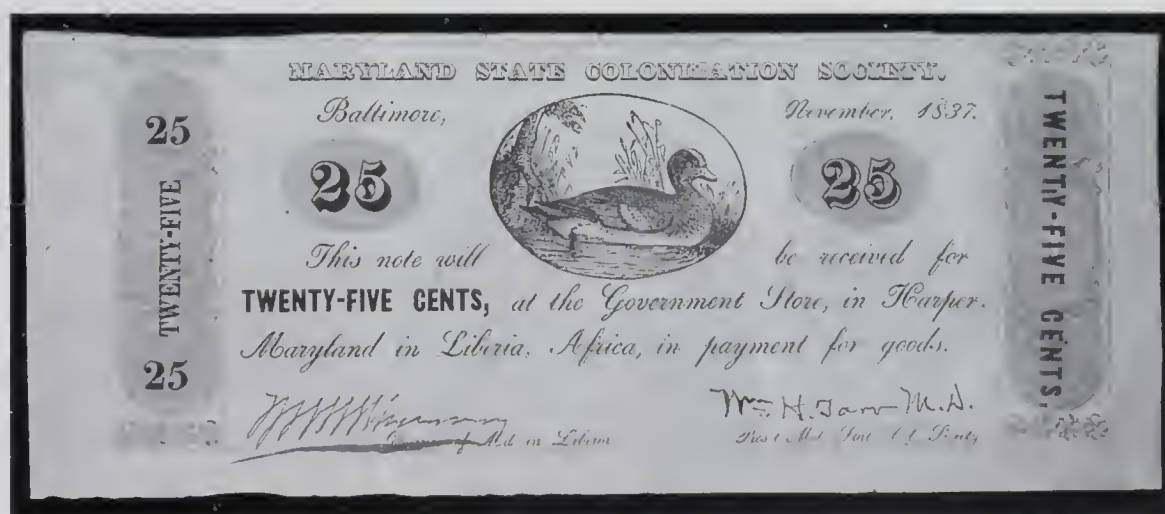 MARYLAND STATE COLONIZATION SOCIETY.
Baltimore, November, 1837.
25
TWENTY-FIVE
25
25
25
This note will be received for
TWENTY-FIVE CENTS, at the Government Store, in Harper.
Maryland in Liberia, Africa, in payment for goods.
Wm H. M.D.
Md in Liberia
TWENTY-FIVE CENTS,